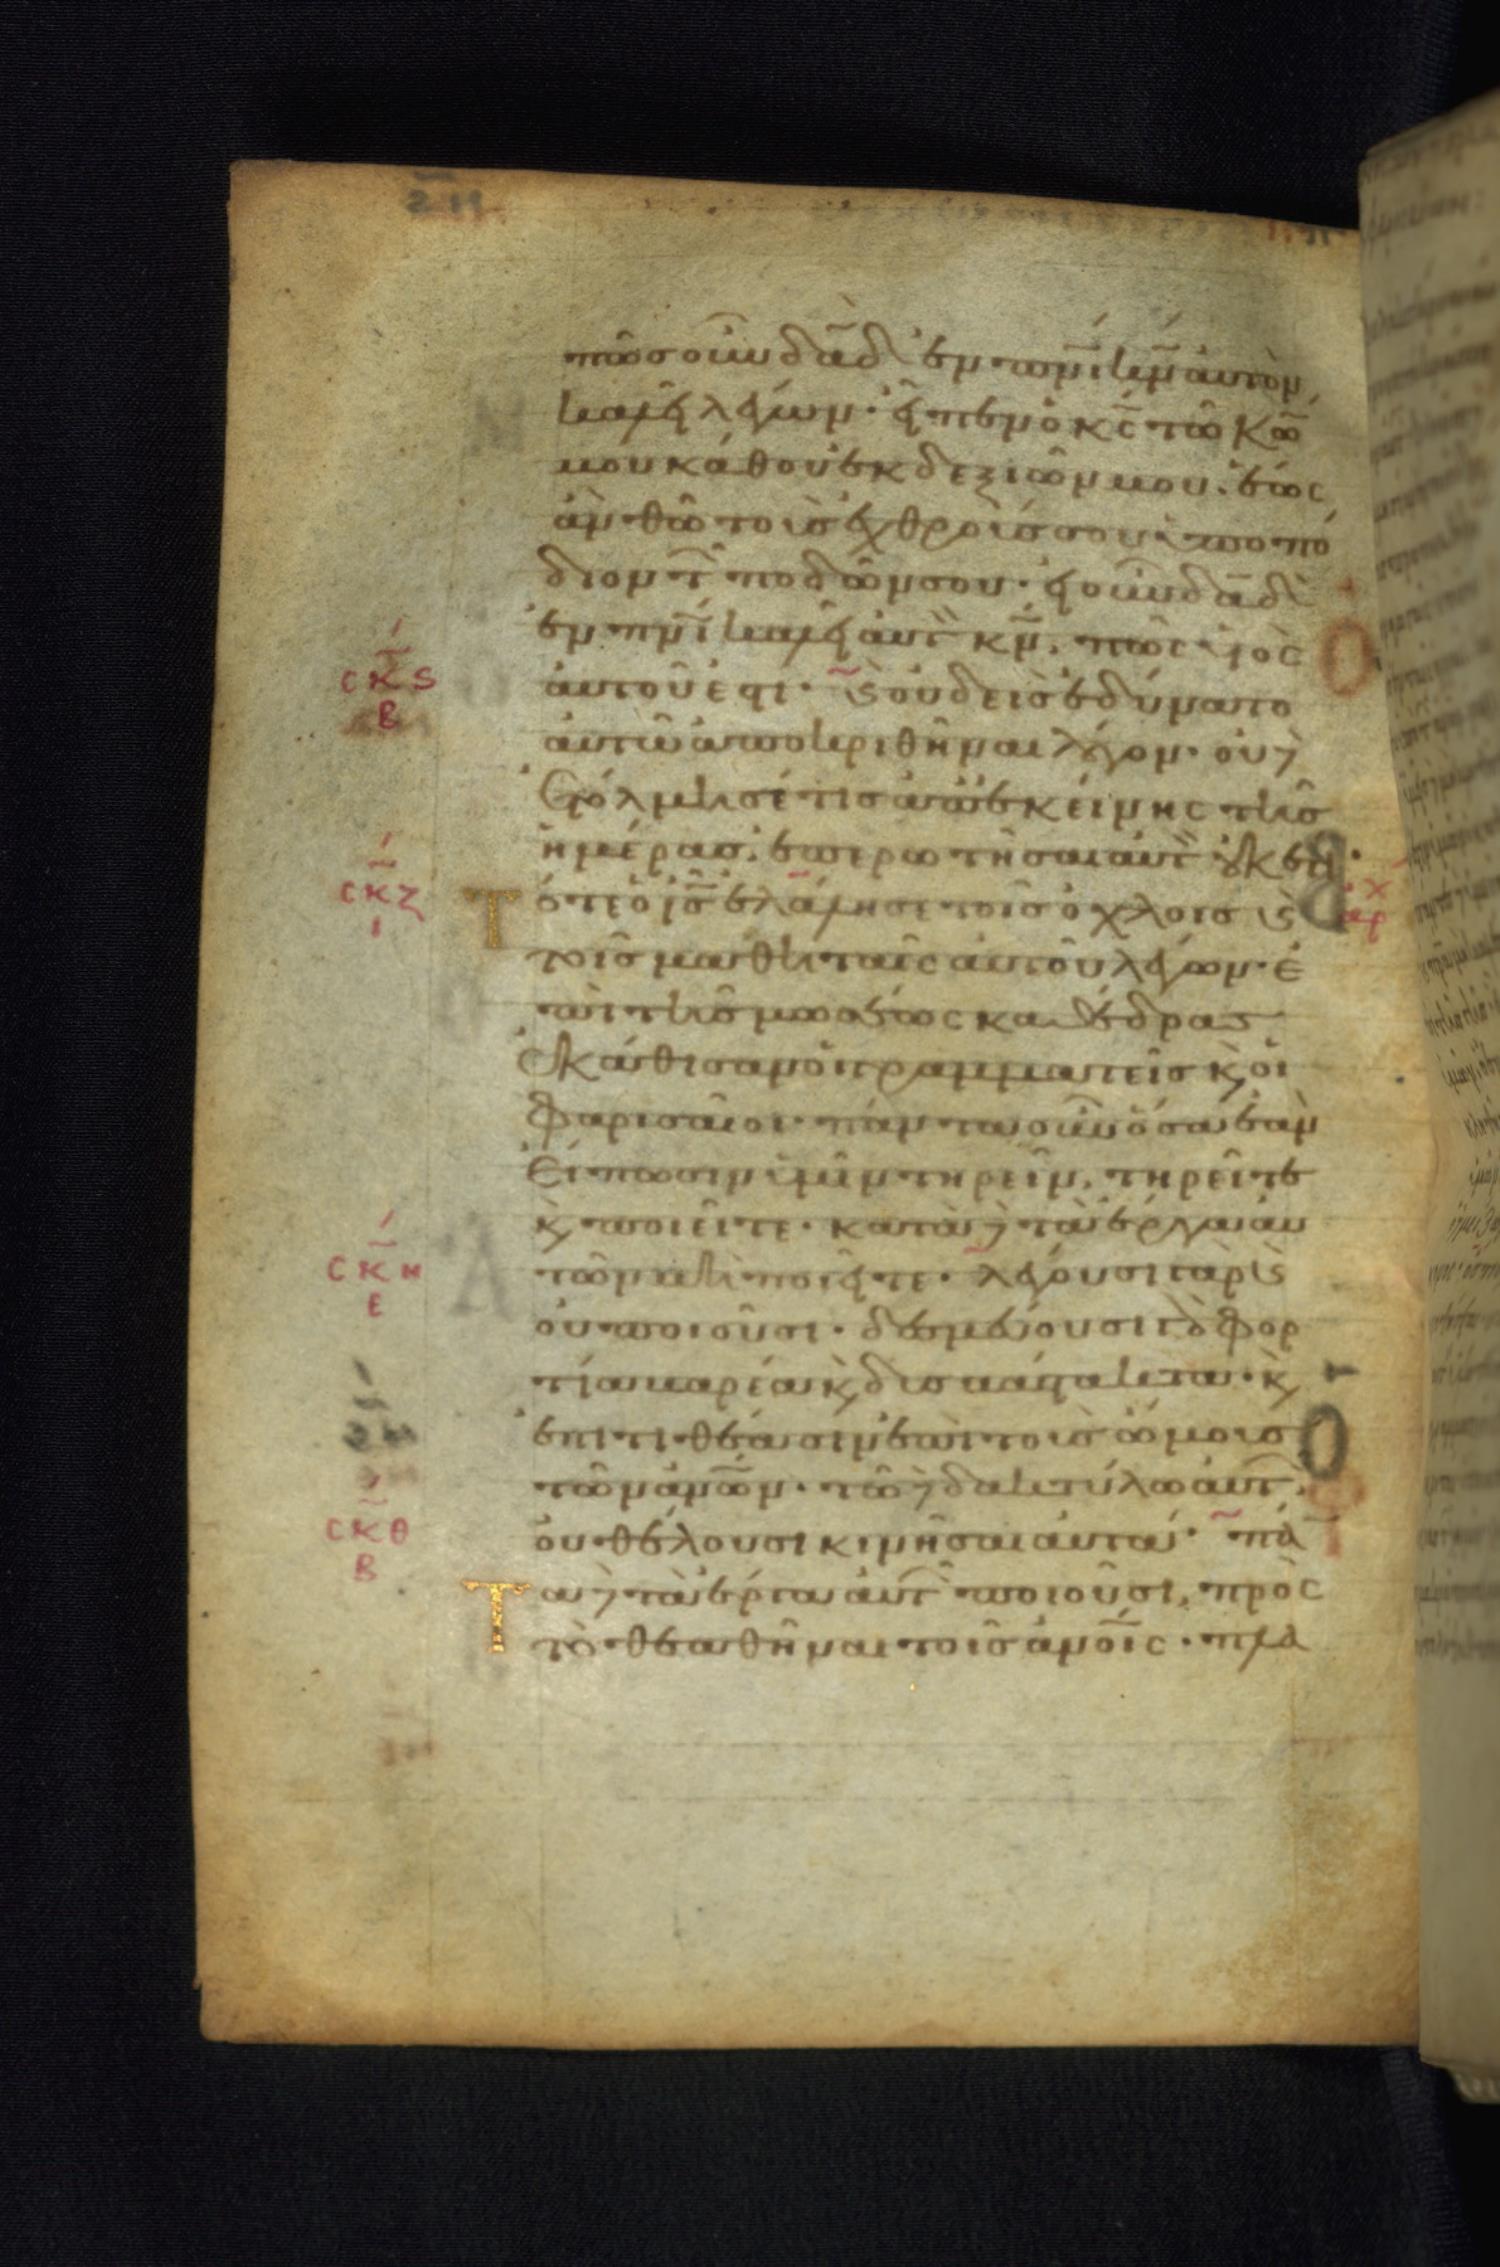 πῶς οὖν δᾱδ̄ ἐν πνῑ κν̄ αὐτὸν
καλεῖ λέγων· εἶπεν ὁ κς̄ τῶ κω̄
μου κάθου ἐκ δεξιῶν μου. ἕως
ἂν θῶ τοὺς ἐχθρούς σου ὑποπό
διον τῶν ποδῶν σου· εἰ οὖν δᾱδ̄
ἐν πνῑ καλεῖ αὐτ κν̄. πῶς υἱὸς
CΚS
Β
αὐτοῦ ἐστι· κ(αὶ) οὐδεὶς ἐδύνατο
αὐτῶ ἀποκριθῆναι λόγον· οὐδὲ
ἐτόλμησέ τις ἀπ ἐκείνης τῆς
ἡμέρας. ἐπερωτῆσαι αὐτ οὐκέτι·
CΚΖ
Ι
Τότε ὁ ις̄ ἐλάλησε τοῖς ὄχλοις κ(αὶ)
ἀρχ
τοῖς μαθηταῖς αὐτοῦ λέγων· ἐ
πὶ τῆς μωσέως καθέδρας
ἐκάθισαν οἱ γραμματεῖς κ(αὶ) οἱ
φαρισαῖοι· πάντα οὖν ὅσα ἐὰν
εἴπωσιν ὑμῖν τηρεῖν. τηρεῖτε
κ(αὶ) ποιεῖτε· κατὰ δὲ τὰ ἔργα αὐ
CΚΗ
Ε
τῶν μὴ ποιεῖτε· λέγουσι γὰρ κ(αὶ)
οὐ ποιοῦσι· δεσμεύουσι γὰρ φορ
τία βαρέα κ(αὶ) δυσβάστακτα· κ(αὶ)
ἐπιτιθέασιν ἐπὶ τοὺς ὤμους
τῶν ἀνω̄ν· τῶ δὲ δακτύλω αὐτ
CΚΘ
Β
οὐ θέλουσι κινῆσαι αὐτά· πάν
Τα δὲ τὰ ἔργα αὐτ ποιοῦσι, πρὸς
τὸ θεαθῆναι τοῖς ἀνοις· πλα